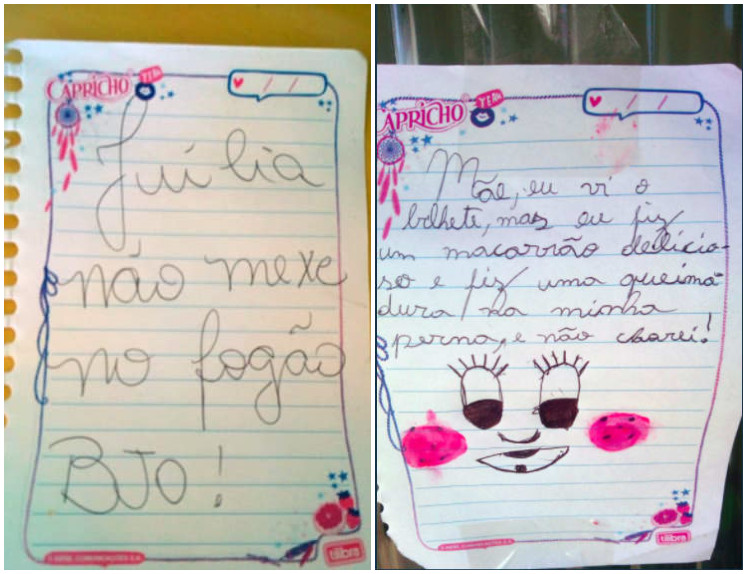 CAPRICHO
YEAH
Juília
não mexe
no fogão
BJO!
tilibra
CAPRICHO
YEAH
Mãe, eu vi o
bilhete, mas eu fiz
um macarrão delicio-
so e fiz uma queima-
dura na minha
perna, e não chorei!
tilibra